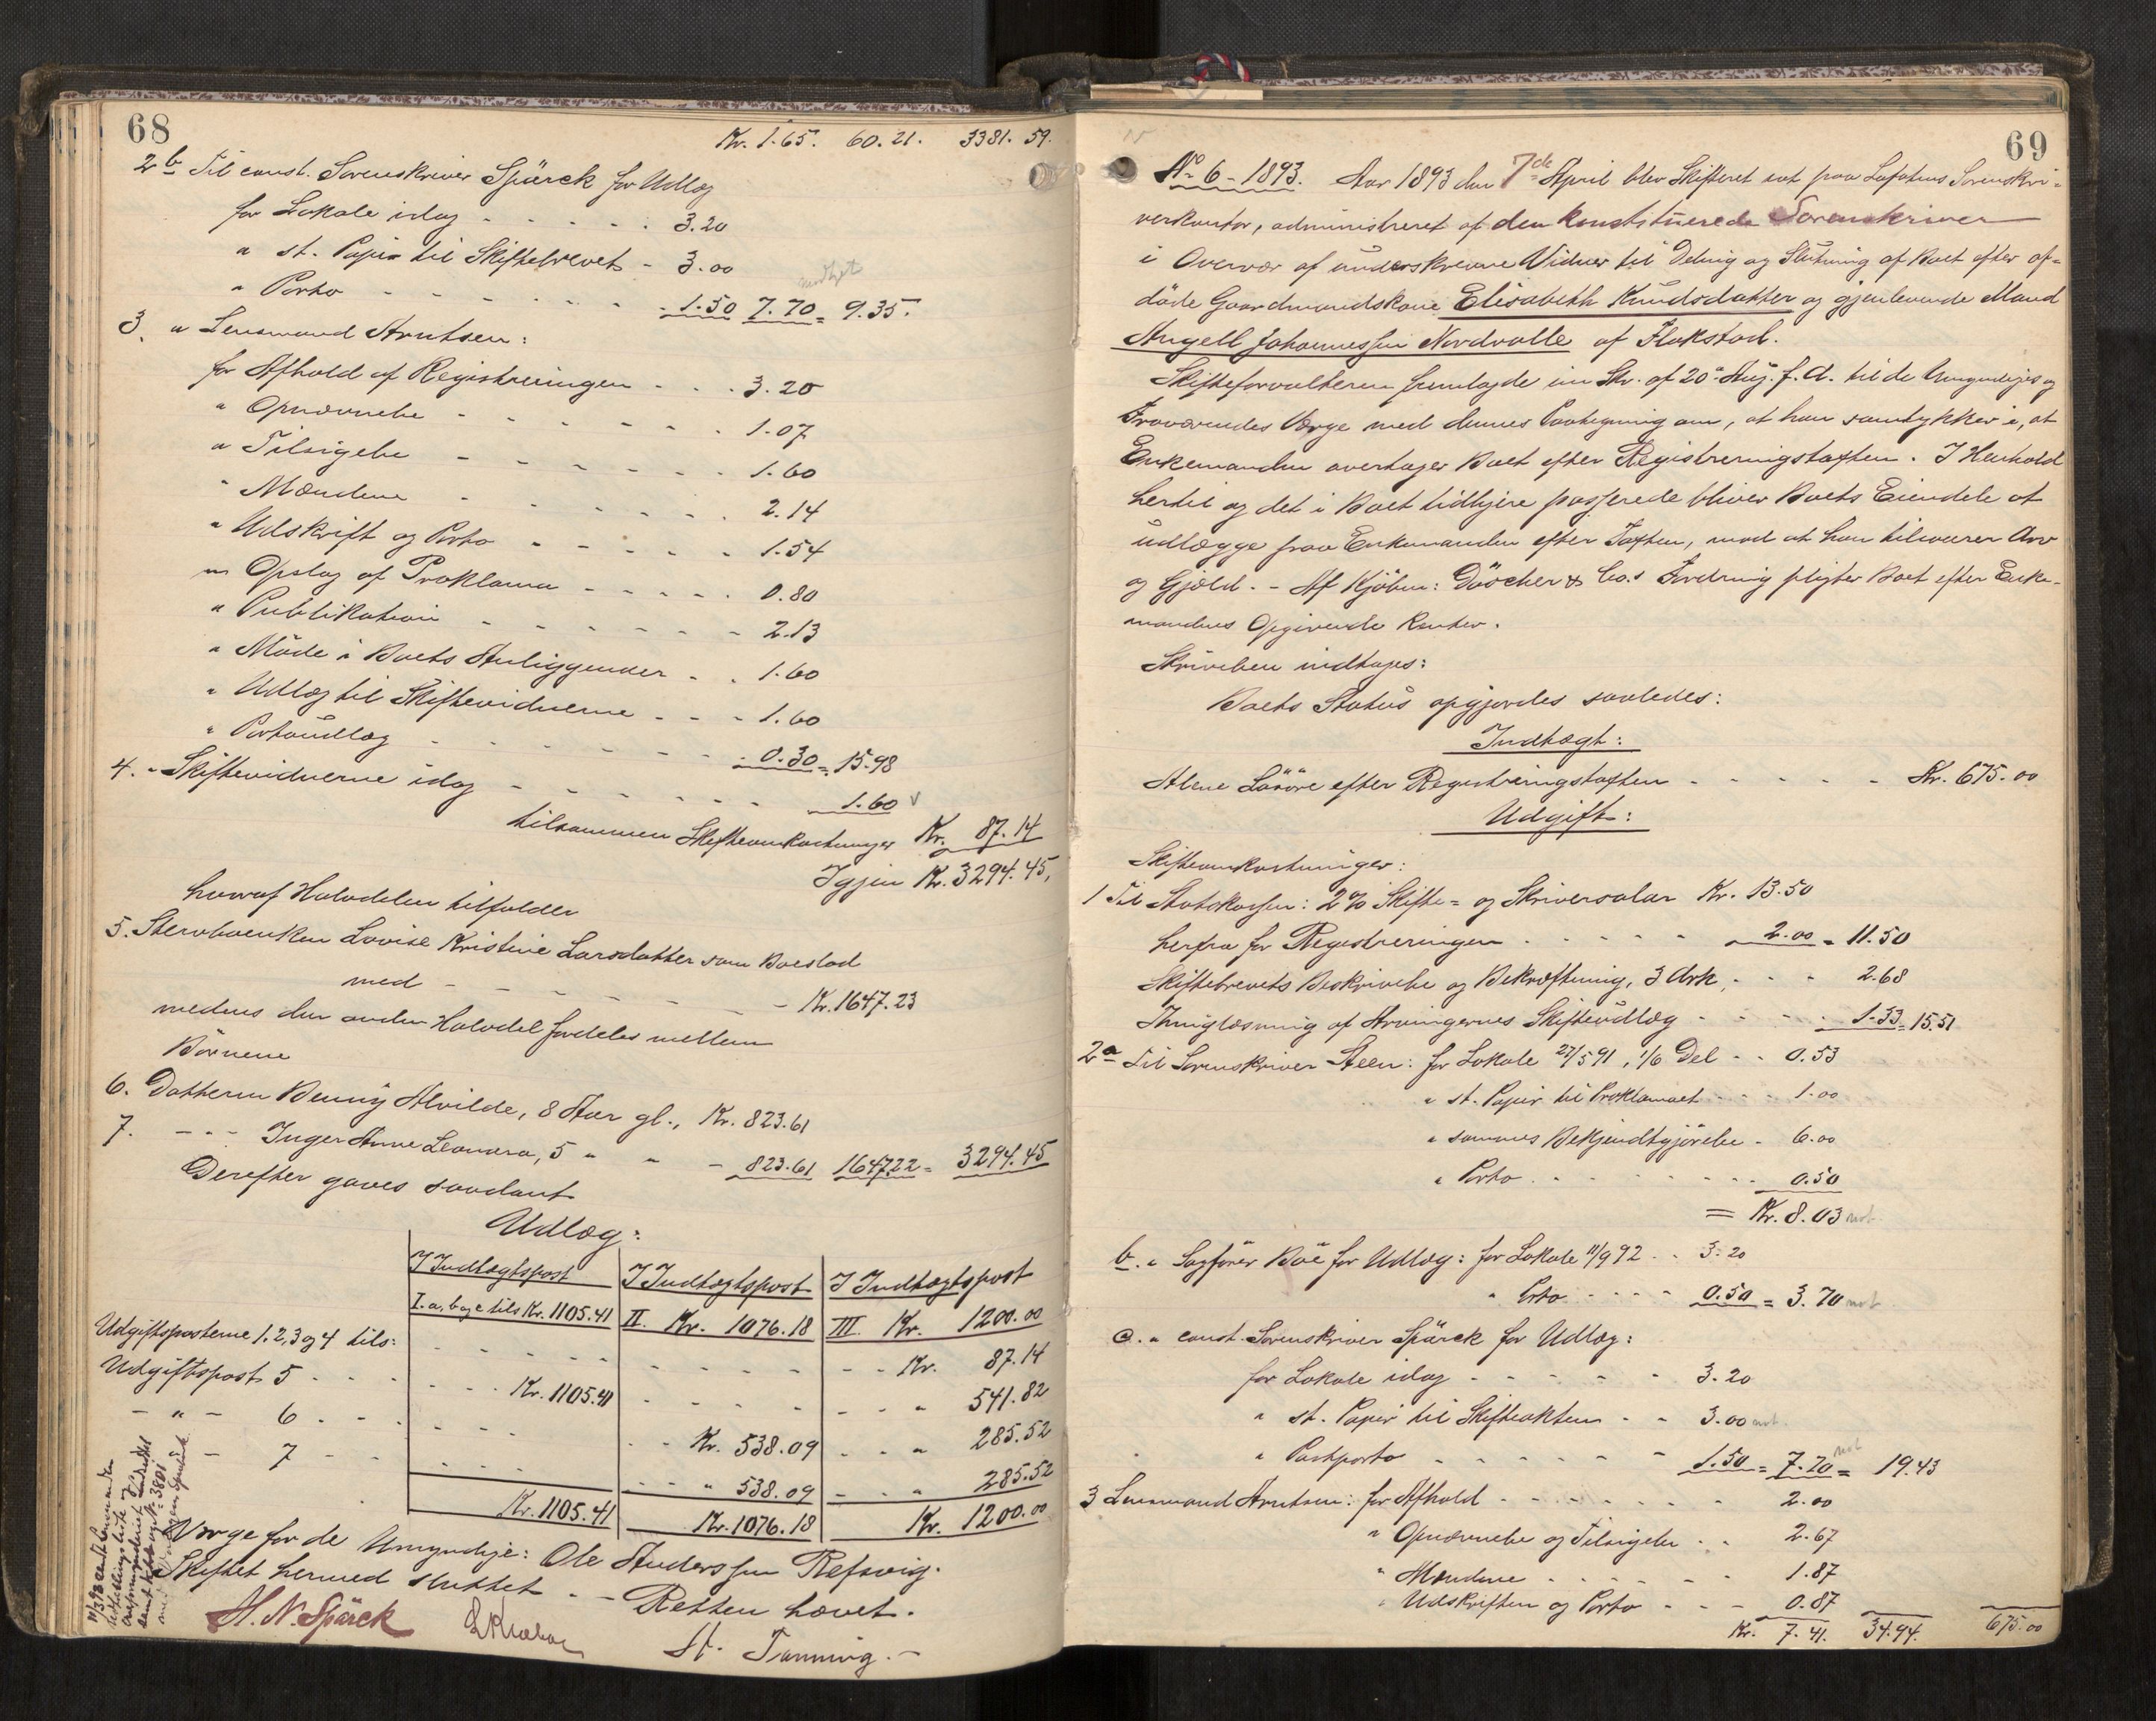 68
Kr. 1.65. 60.21. 3381.59.
2b Til const. Sorenskriver Spärck for Udlæg
for Lokale idag - - - - - 3.20
" st. Papir til Skiftebrevet - 3.00
" Porto - - - - - - 1.50 7.70 = 9.35.
3. " Lensmand Arntsen:
for Afhold af Registreringen - - - 3.20
" Opnævnelse - - - - - - 1.07
" Tilsigelse - - - - - - - 1.60
" Mændene - - - - - - 2.14
" Udskrift og Porto - - - - - 1.54
" Opslag af Proklama - - - - - 0.80
" Publikation - - - - - - - 2.13
" Møde i Boets Anliggender - - 1.60
" Udlæg til Skiftevidnerne - - - 1.60
" Portoudlæg - - - - - - - 0.30 = 15.98
4. " Skiftevidnerne idag - - - - - - 1.60
tilsammen Skifteomkostninger Kr. 87.14
Igjen Kr. 3294.45,
hvoraf Halvdelen tilfalder
5. Stervboenken Lovise Kristine Larsdatter som Boeslod
med - - - - - - - Kr. 1647.23
medens den anden Halvdel fordeles mellem
Börnene
6. Datteren Benny Alvilde, 8 Aar gl., Kr. 823.61
7. - - - Inger Anne Leonora, 5 " " - 823.61 1647.22 = 3294.45
Derefter gaves saadant
Udlæg:
I Indtægtspost I Indtægtspost I Indtægtspost
I. a, b og c tils Kr. 1105.41 II. Kr. 1076.18 III Kr. 1200.00
Udgiftsposterne 1, 2, 3 og 4 tils: - - - - - - - - Kr. 87.14
Udgiftspost 5 - - - Kr. 1105.41 - - - - - " 541.82
- " - 6 - - - - Kr. 538.09 - - " 285.52
- 7 - - - - - " 538.09 - - " 285.52
Kr. 1105.41 Kr. 1076.18 Kr. 1200.00
Værge for de Umyndige: Ole Anderssen Refsvig.
Skiftet hermed sluttet - - Retten hævet.
H. N. Spärck
A. Tanning. -
69
No 6 - 1893. Aar 1893 den 7de April blev Skifteret sat paa Lofotens Sorenskri-
verkontor, administreret af den konstituerede Sorenskriver
i Overvær af underskrevne Vidner til Deling og Slutning af Boet efter af-
døde Gaardmandskone Elisabeth Knudsdatter og gjenlevende Mand
Angell Johannessen Nordvalle af Flakstad.
Skifteforvalteren fremlagde sin Skr. af 20de Aug. f. A. til de Umyndiges og
Fraværendes Værge med dennes Paategning om, at han samtykker i, at
Enkemanden overtager Boet efter Registreringstaxten. I Henhold
hertil og det i Boet tidligere passerede bliver Boets Eiendele at
udlægge paa Enkemanden efter Taxten, mod at han tilsvarer Arv
og Gjæld. - Af Kjøbm: Dövcher & Co.s Fordring pligter Boet efter Enke-
mandens Opgivende Renter.
Skrivelsen indtages:
Boets Status opgjordes saaledes:
Indtægt:
Alene Løsøre efter Registreringstaxten - - - - - Kr. 675.00
Udgift:
Skifteomkostninger:
1 Til Statskassen: 2% Skifte- og Skriversalar Kr. 13.50
herfra for Registreringen - - - - - 2.00 = 11.50
Skiftebrevets Beskrivelse og Bekræftning, 3 Ark, - - - 2.68
Thinglæsning af Arvingernes Skifteudlæg - - - - 1.33 = 15.51
2a Til Sorenskriver Steen: for Lokale 27/5 91, 1/6 Del - - 0.53
" st. Papir til Proklamaet - - - 1.00
" sammes Bekjendtgjørelse - 6.00
" Porto - - - - - - - 0.50
= Kr. 8.03 not.
b. " Sagfører Boe for Udlæg: for Lokale 11/9 92 - - 3.20
" Porto - - - - 0.50 = 3.70 not
c. " const. Sorenskriver Spärck for Udlæg:
for Lokale idag - - - - - 3.20
" st. Papir til Skifteakten - - 3.00 not.
" Postporto - - - - - - 1.50 = 7.70 = 19.43
3 Lensmand Arntsen: for Afhold - - - - - - - 2.00
" Opnævnelse og Tilsigelse - - 2.67
" Mændene - - - - - - 1.87
" Udskriften og Porto - - - 0.87
Kr. 7.41. 34.94. 675.00